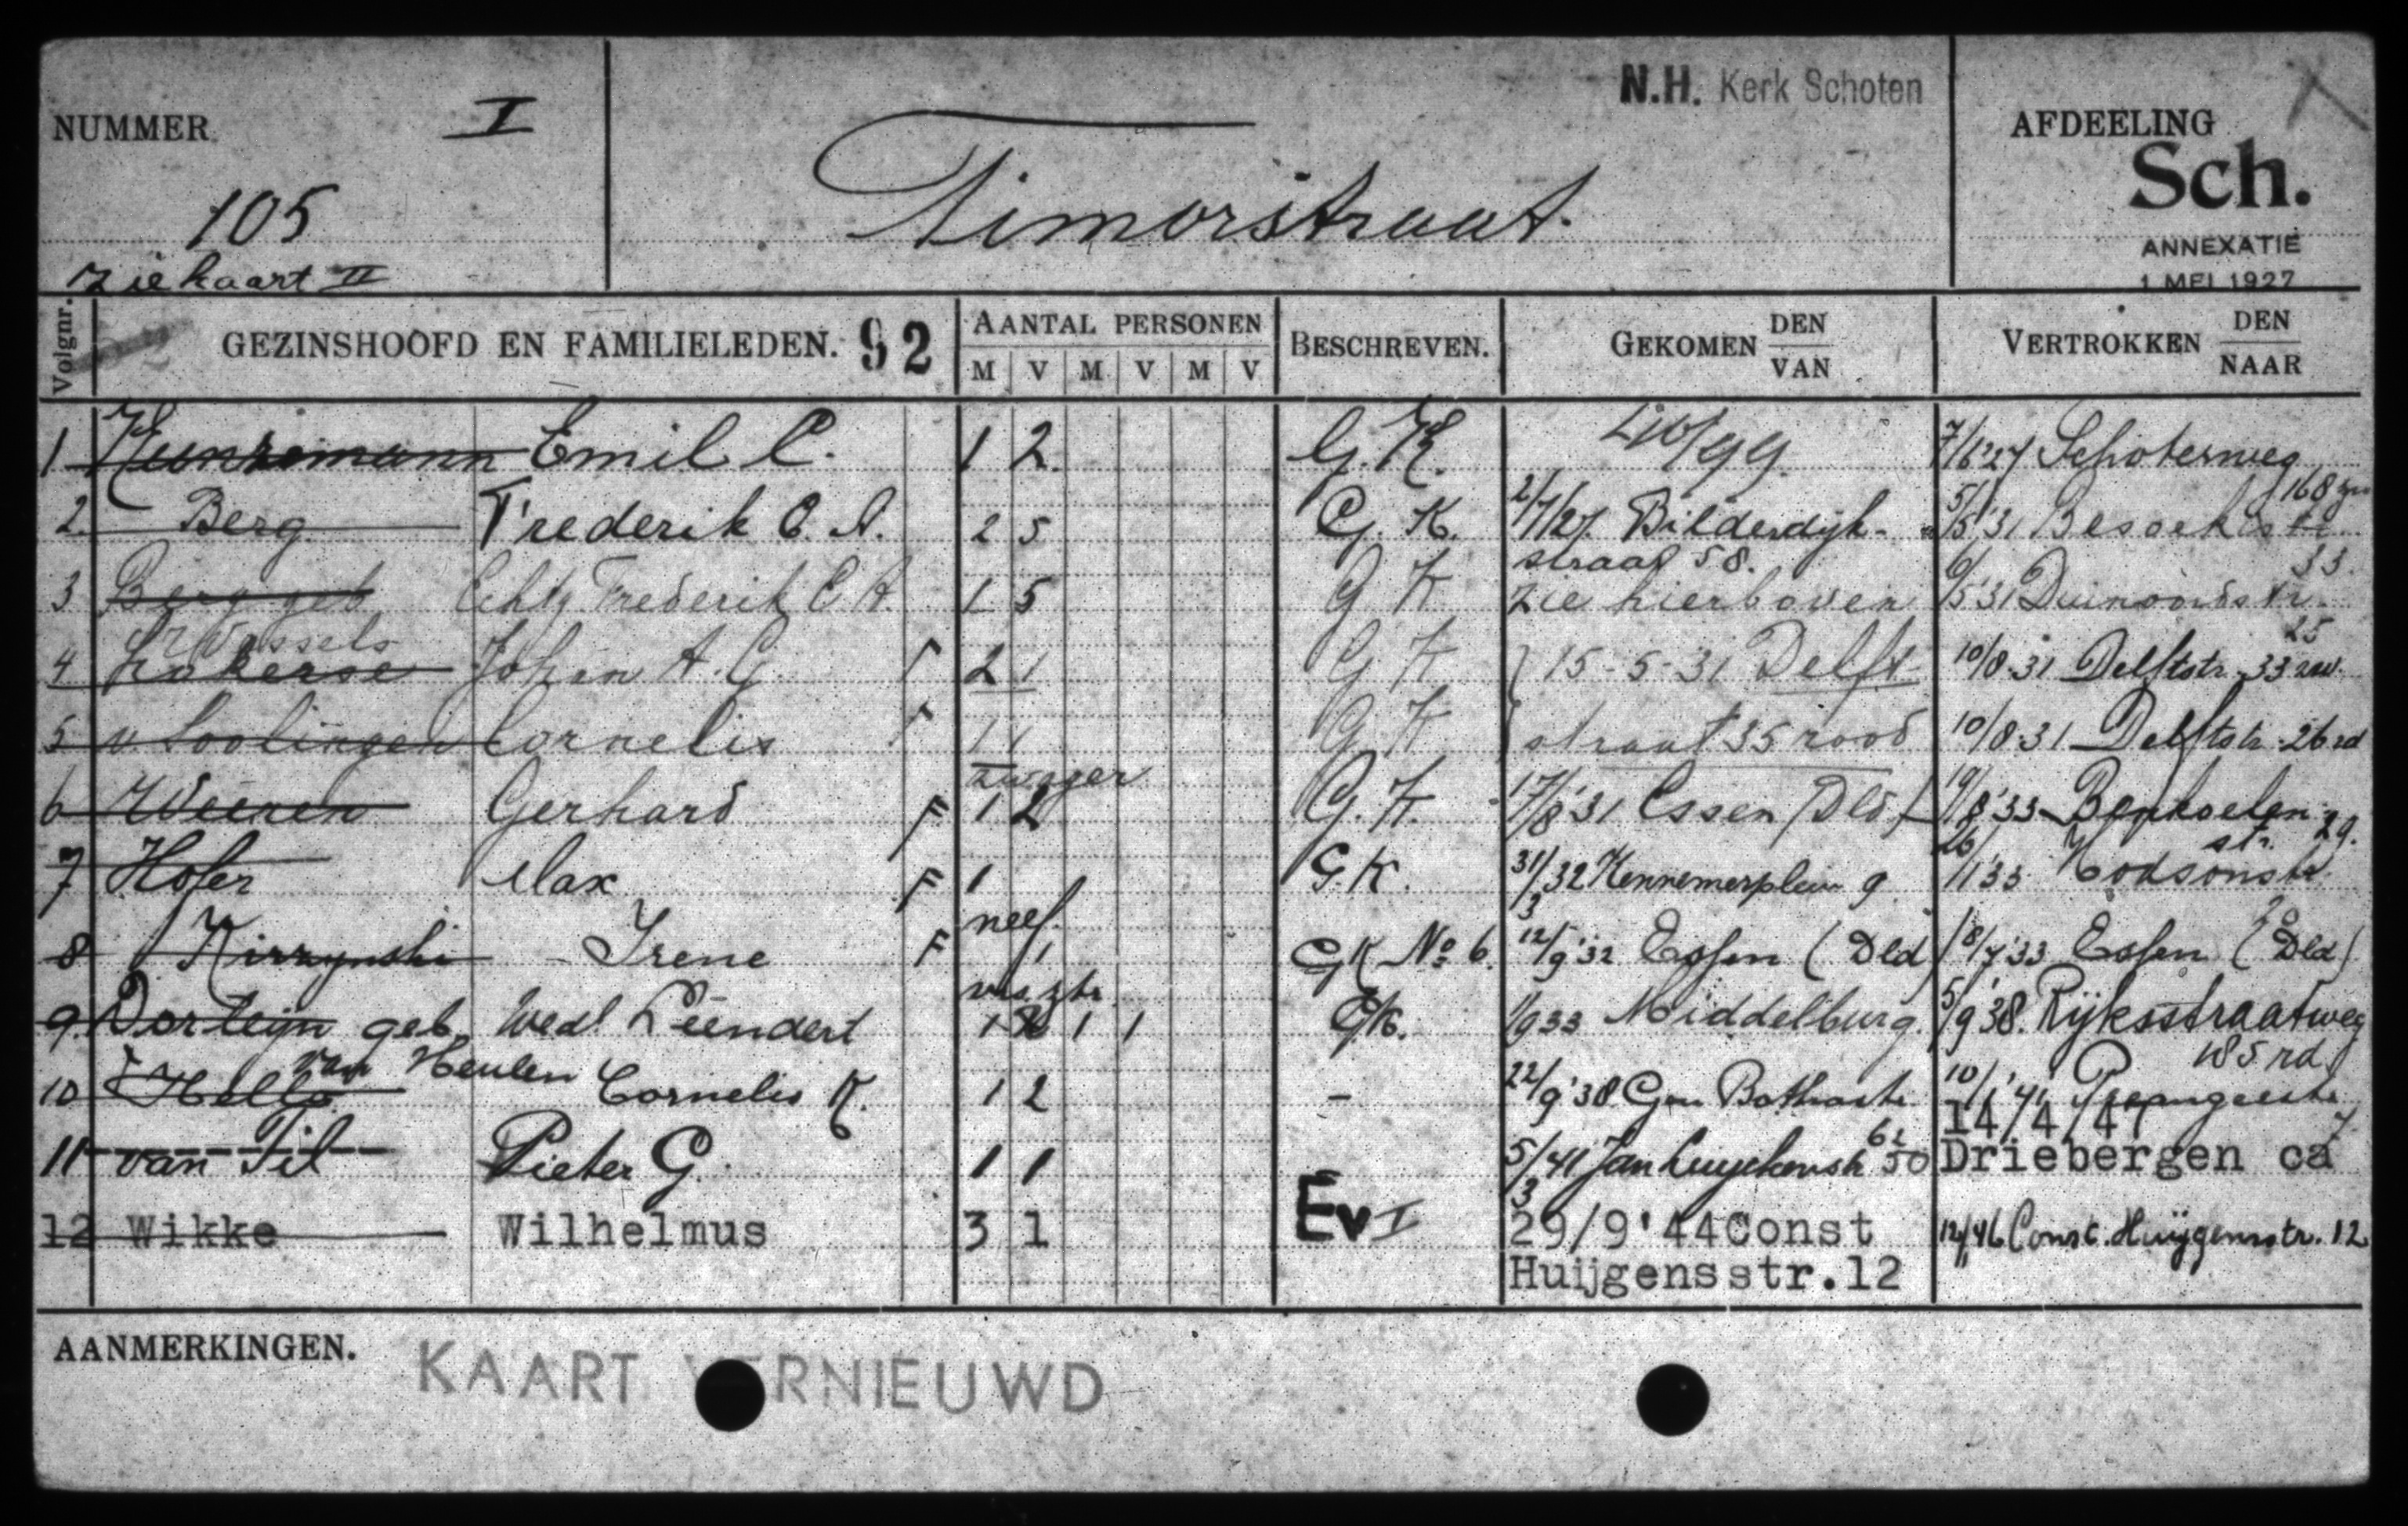 NUMMER I N.H. Kerk Schoten AFDEELING
Sch.
105 Timorstraat.
ANNEXATIE
zie kaart II 1 MEI 1927
Volgnr. GEZINSHOOFD EN FAMILIELEDEN. 92 AANTAL PERSONEN BESCHREVEN. GEKOMEN DEN VAN VERTROKKEN DEN NAAR
M V M V M V
1 Emil C. 1 2. G.K. 7/6 27 Schoterweg
168 zw
2. Berg Frederik C. A. 2 5 G. K. 2/7/27. Bilderdijk- 5/5 '31
straat 58. 33.
3 Berg geb Echtg Frederik C A. 1 5 G K zie hierboven 6/5 '31 Duinoordstr.
Wessels 25
4 Johan A. G. F 2 1 G K 15-5-31 Delft 10/8-31 Delftstr 33 zw.
5 v. Soolingen Cornelis F 1 1 G K straat 35 rood 10/8-31 Delftstr. 26 rd
zwager
6 Gerhard F 1 2 G.K. 17/8 '31 Essen (Dld) 19/8 '33 Benkoelen-
str. 29.
7 Hofer Max F 1 G.K. 31/3 32 Kennemerplein 9 26/1 '33 Hodsonstr.
neef. 20
8 Irene F 1 GK No 6. 12/9 '32 Essen (Dld) 18/7 '33 Essen (Dld)
9. Dorteijn geb. Wed. Leendert 1 1 1 G.K. 1/9 33 Middelburg. 5/9 '38. Rijksstraatweg
van Heulen 185 rd
10 Cornelis K. 1 2 - 22/9 '38 Gen Bothastr. 10/1 '41
62 14/4/47 7
11 van Til Pieter G. 1 1 5/3 41 Jan Luyckenstr 50 Driebergen ca
12 Wikke Wilhelmus 3 1 Ev I 29/9'44Const 12/11 46 Const. Huijgensstr. 12
Huijgensstr.12
AANMERKINGEN. KAART VERNIEUWD